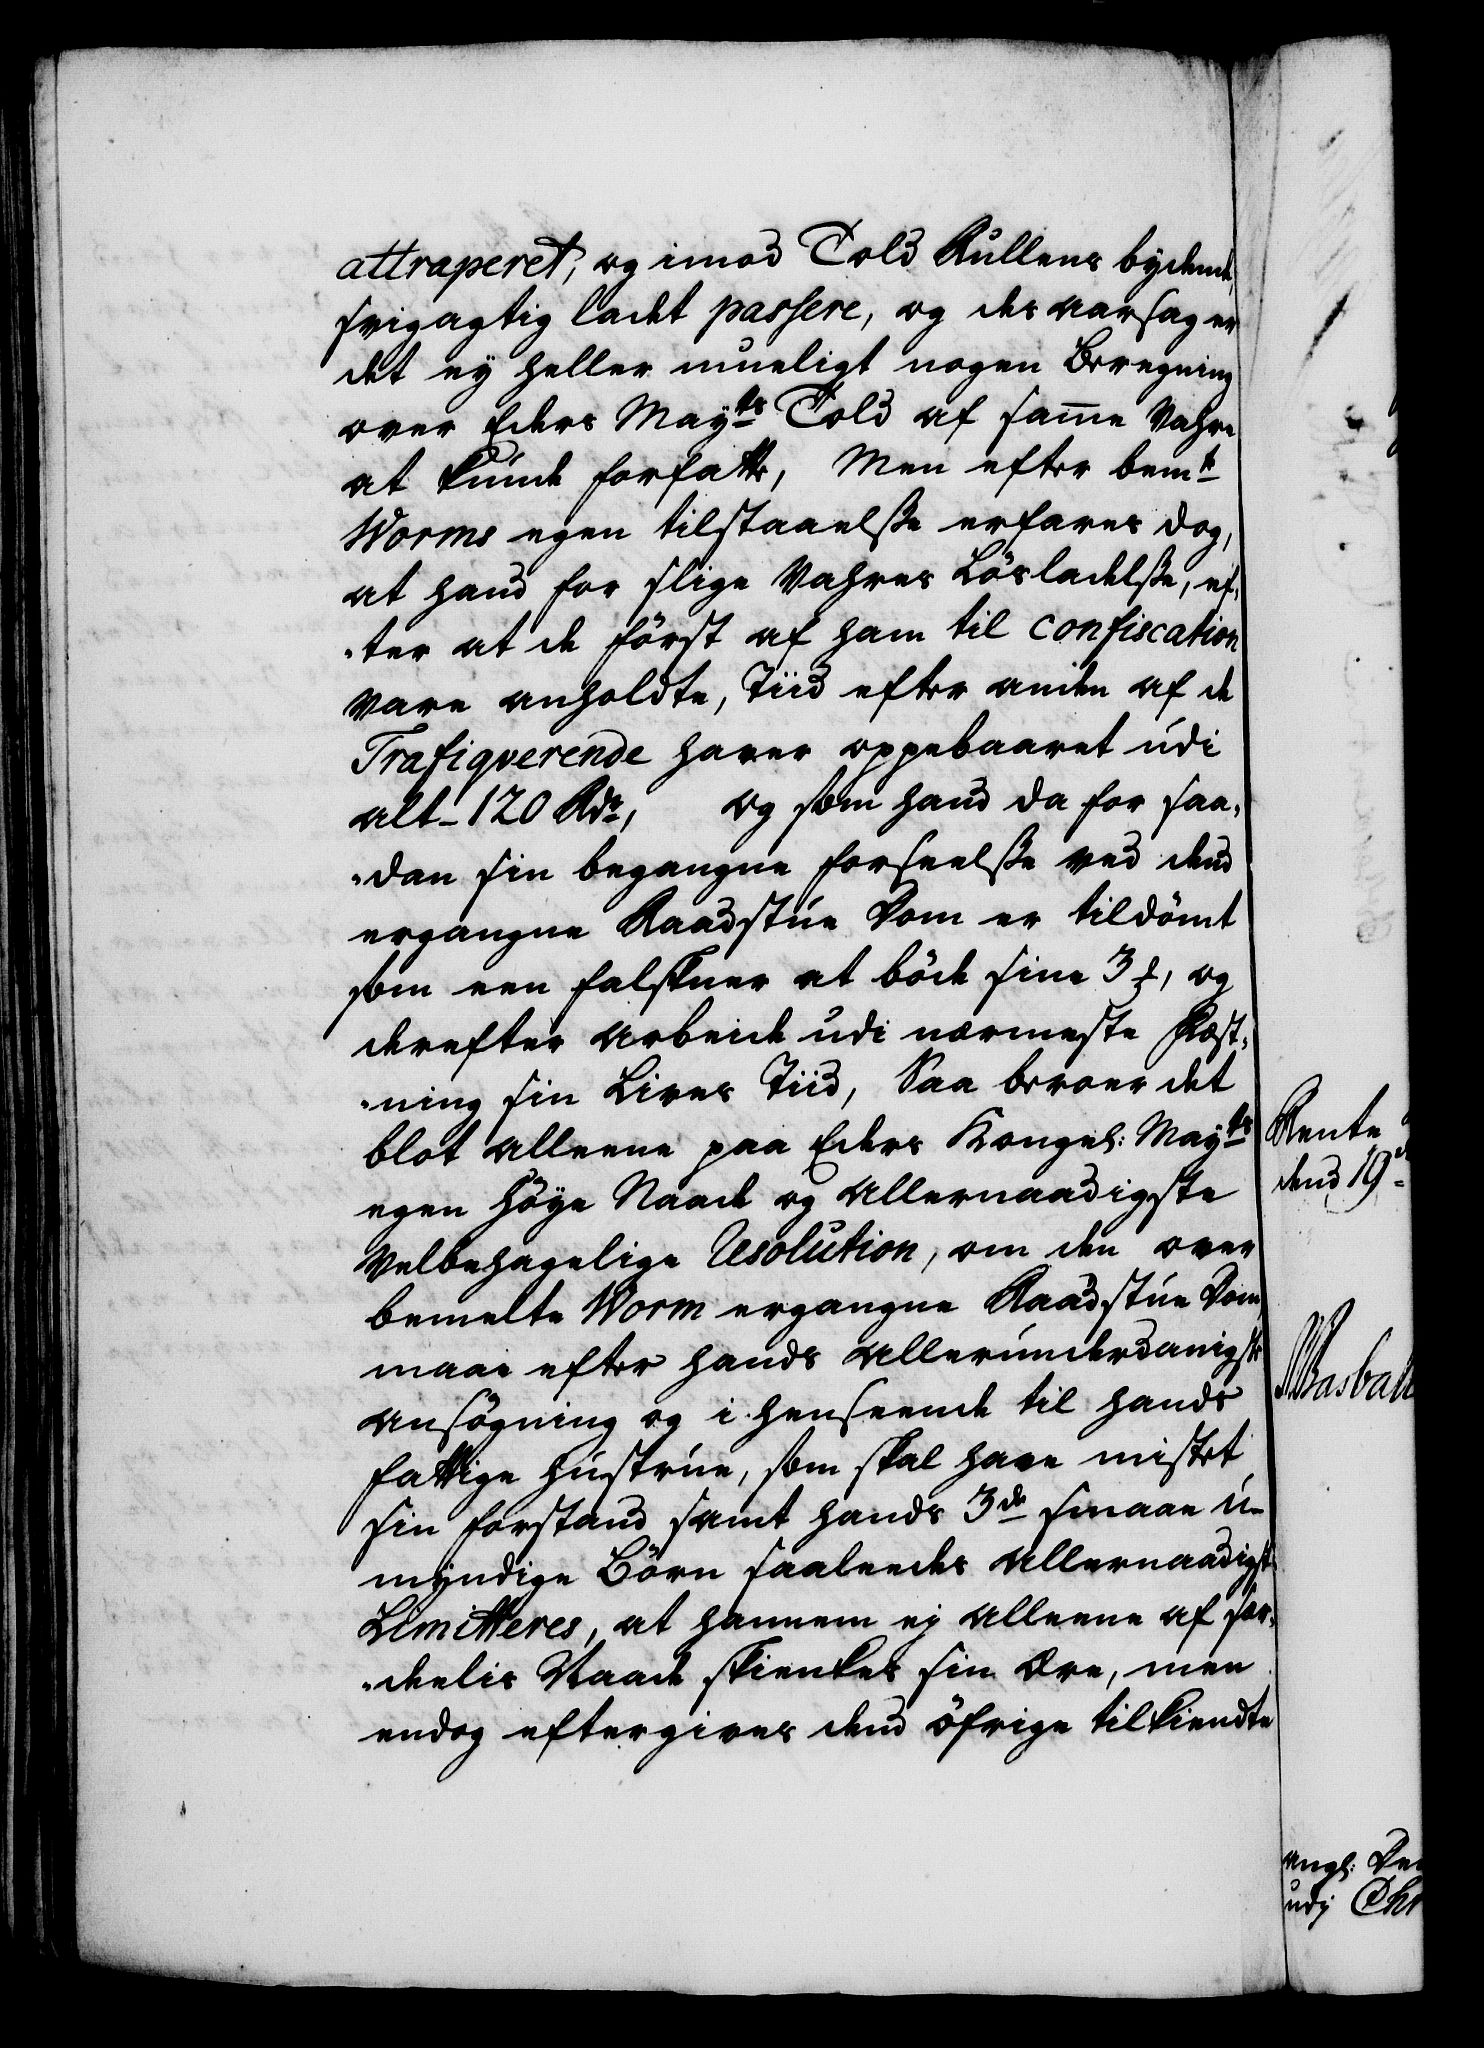 attraperet, og imod Told Rullens bydende,
svigagtig ladet passere, og des aarsag er
det ey heller mueligt nogen Beregning
over Eders Mayts Told af samme Vahre
at kunde forfatte, Men efter bemte
Worms egen tilstaaelsse erfares dog,
at hand for slige Vahres Lösladelsse, ef,
,ter at de först af ham til confiscation
vare anholdte, Tiid efter anden af de
Trafiqverende haver oppebaaret udi
alt 120 Rdr, og som hand da for saa,
,dan sin begangne forseelsse ved dend
ergangne Raadstue Dom er tildömt
som een falskner at böde sine 3 ₰, og
derefter arbeide udi nærmeste Fæst,
,ning sin Lives Tiid, Saa beroer det
blot alleene paa Eders Kongel: Mayts
egen Höye Naade og allernaadigste
Velbehagelige Resolution, om den over
bemelte Worm ergangne Raadstue Dom
maae efter hands allerunderdanigste
ansögning og i henseende til hands
fattige Hustrue, som skal have mistet
sin forstand samt hands 3de smaae u-
myndige Börn saaleedes allernaadigst
Limitteres, at hannem ej alleene af sær,
,deelis Naade skienkes sin Ære, men
endog eftergives dend öfrige tilkiendte
Rente
dend 19
angl:
udj Chr